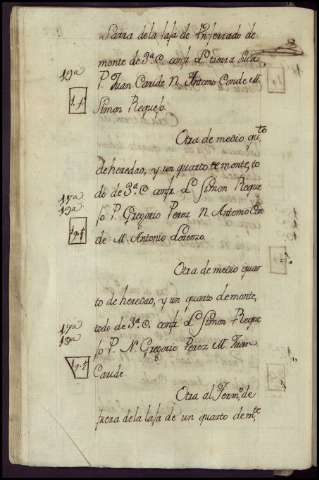 Parra de la lasa de Enferrado de
monte de 3ª C. confª L. tierra
19ª P. Juan Caude N. Antonio Caude M.
Simon Requejo.
Otra de medio qu.to
de heredao, y un quarto de monte, to
do de 3ª C. confª L. Simon Reque
jo P. Gregorio Perez N. Antonio Con
de M. Antonio Lorenzo.
Otra de medio quar
to de heredao, y un quarto de monte,
todo de 3ª C. confª L. Simon Reque
jo P. N. Gregorio Perez M. Juan
Caude
Otra al Term.º de
fuera de la lasa de un quarto de m.te